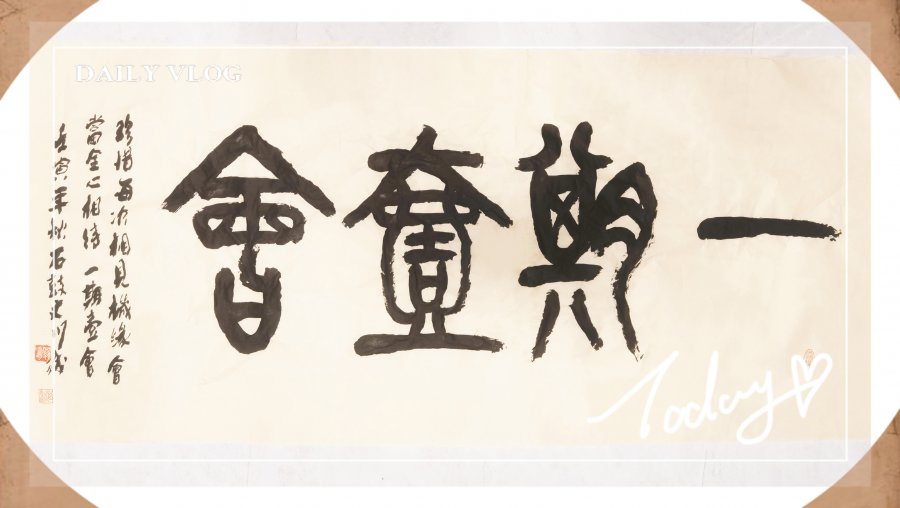 DAILY VLOG
一期壹會
珍惜每次相見機緣會
當全心相待一期壹會
壬寅年秋石鼓
Today